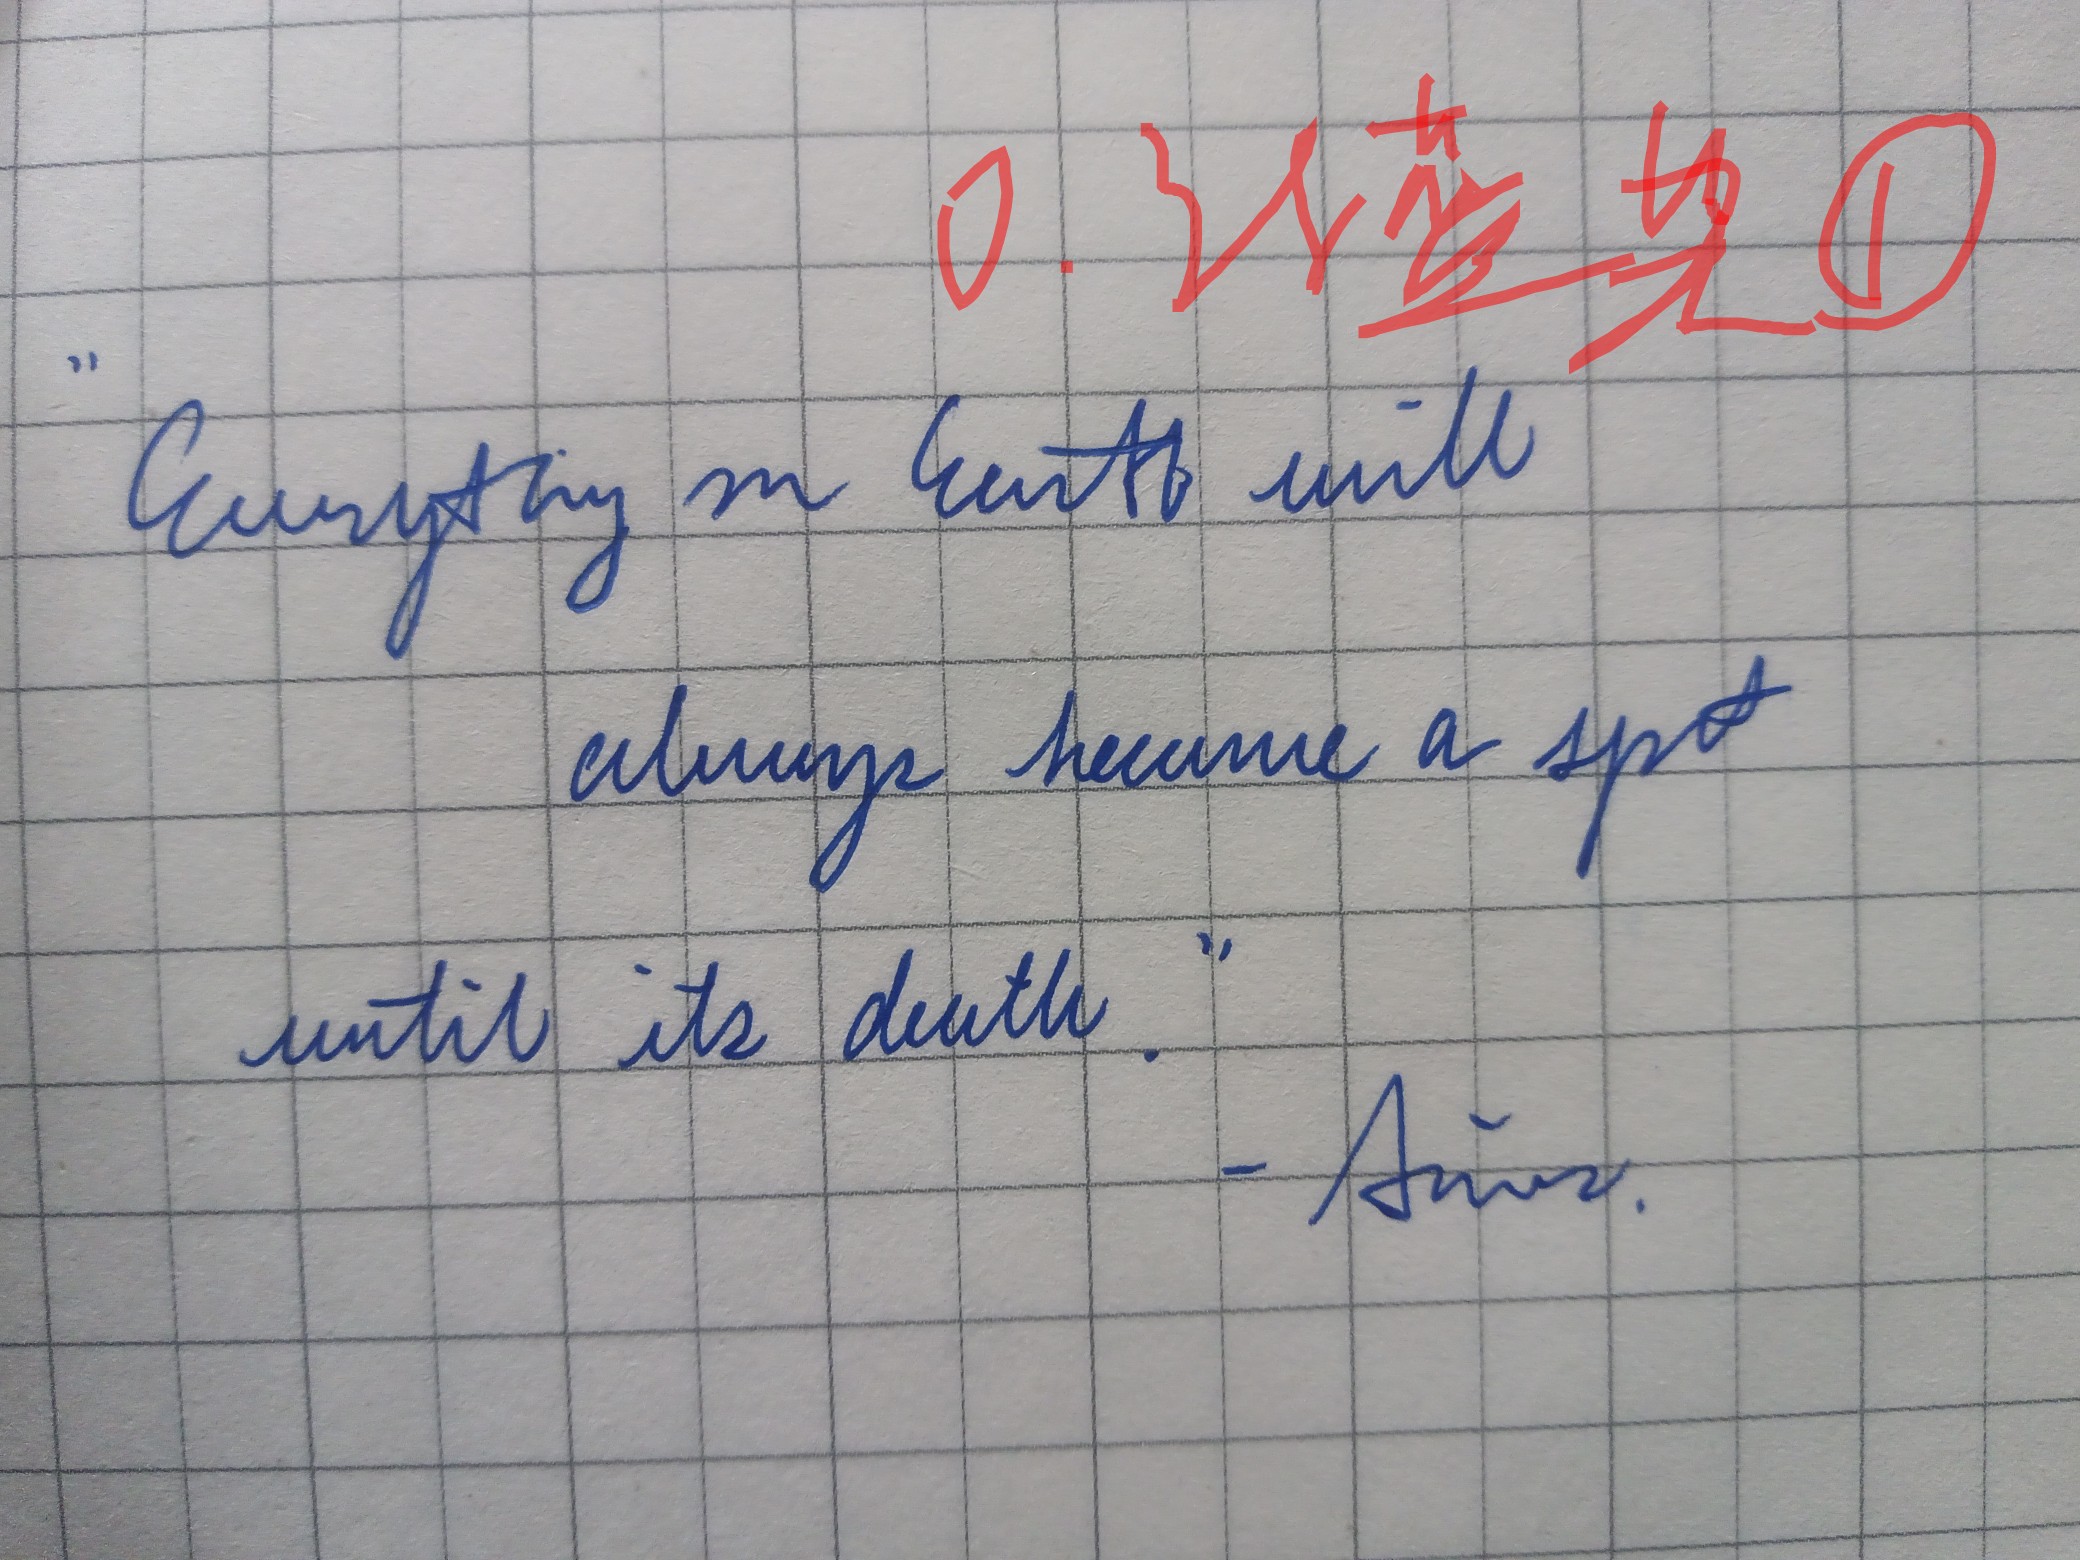 "Everything on Earth will
always become a spot
until its death."